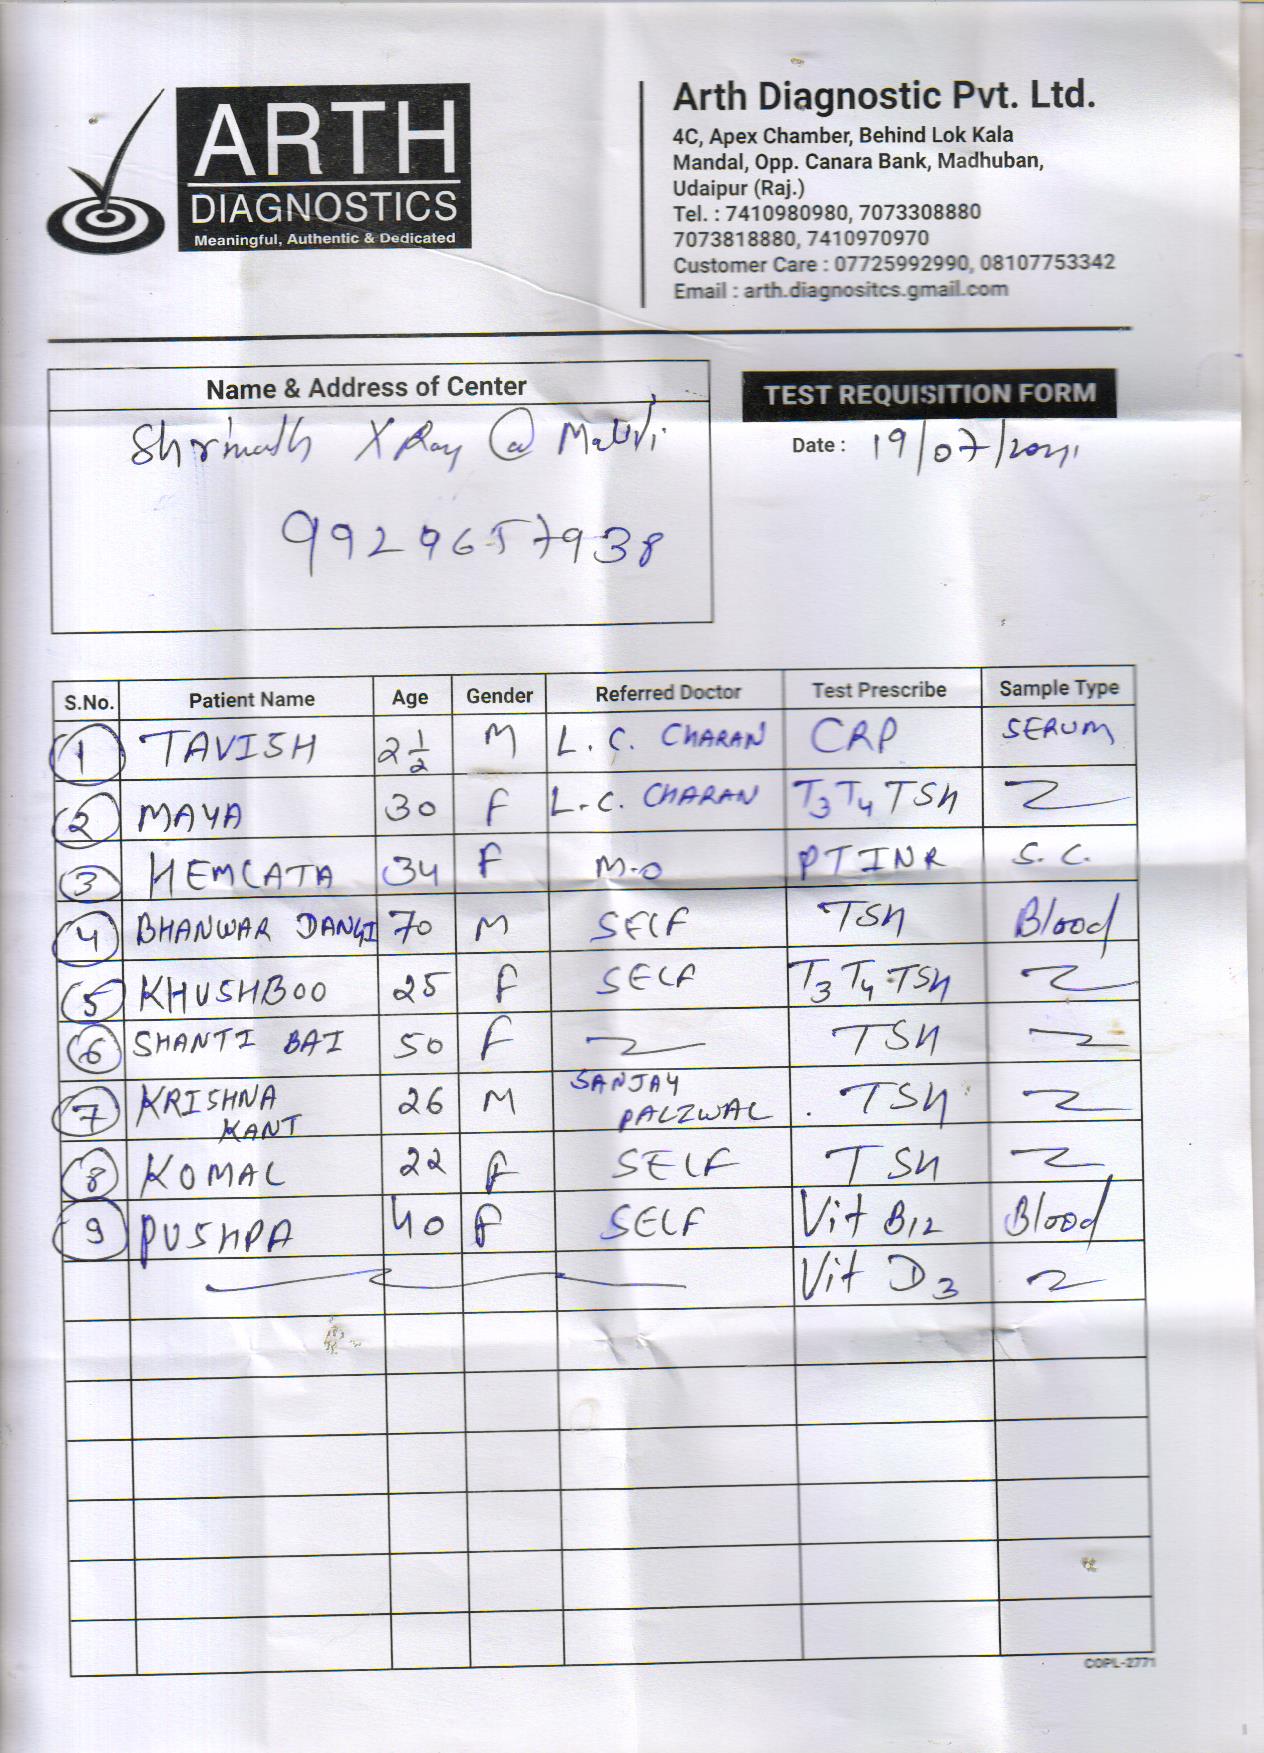 ARTH
DIAGNOSTICS
Meaningful, Authentic & Dedicated
Arth Diagnostic Pvt. Ltd.
4C, Apex Chamber, Behind Lok Kala
Mandal, Opp. Canara Bank, Madhuban,
Udaipur (Raj.)
Tel. : 7410980980, 7073308880
7073818880, 7410970970
Customer Care : 07725992990, 08107753342
Email : arth.diagnositcs.gmail.com
Name & Address of Center
X Ray @
9929657938
TEST REQUISITION FORM
Date : 19/07/2021
S.No. Patient Name Age Gender Referred Doctor Test Prescribe Sample Type
1 TAVISH 2 1/2 M L. C. CHARAN CRP SERUM
2 MAYA 30 F L. C. CHARAN T3 T4 TSH
3 HEMLATA 34 F M.O PTINR S. C.
4 BHANWAR DANGI 70 M SELF TSH Blood
5 KHUSHBOO 25 F SELF T3 T4 TSH
6 SHANTI BAI 50 F TSH
7 KRISHNA KANT 26 M SANJAY PALIWAL TSH
8 KOMAL 22 F SELF TSH
9 PUSHPA 40 F SELF Vit B12 Blood
Vit D3
COPL-2771